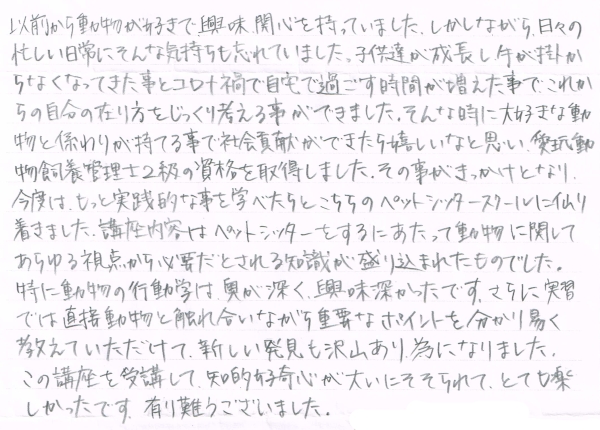 以前から動物が好きで、興味、関心を持っていました。しかしながら、日々の
忙しい日常にそんな気持ちも忘れていました。子供達が成長し、手が掛か
らなくなってきた事とコロナ禍で自宅で過ごす時間が増えた事で、これか
らの自分の在り方をじっくり考える事ができました。そんな時に大好きな動
物と係わりが持てる事で社会貢献ができたら嬉しいなと思い、愛玩動
物飼養管理士2級の資格を取得しました。その事がきっかけとなり、
今度は、もっと実践的な事を学べたらとこちらのペットシッタースクールに仙り
着きました。講座内容はペットシッターをするにあたって動物に関して
あらゆる視点から必要だとされる知識が盛り込まれたものでした。
特に動物の行動学は、奥が深く、興味深かったです。さらに実習
では直接動物と触れ合いながら重要なポイントを分かり易く
教えていただけて、新しい発見も沢山あり、為になりました。
この講座を受講して、知的好奇心が大いにそそられて、とても楽
しかったです。有り難うございました。